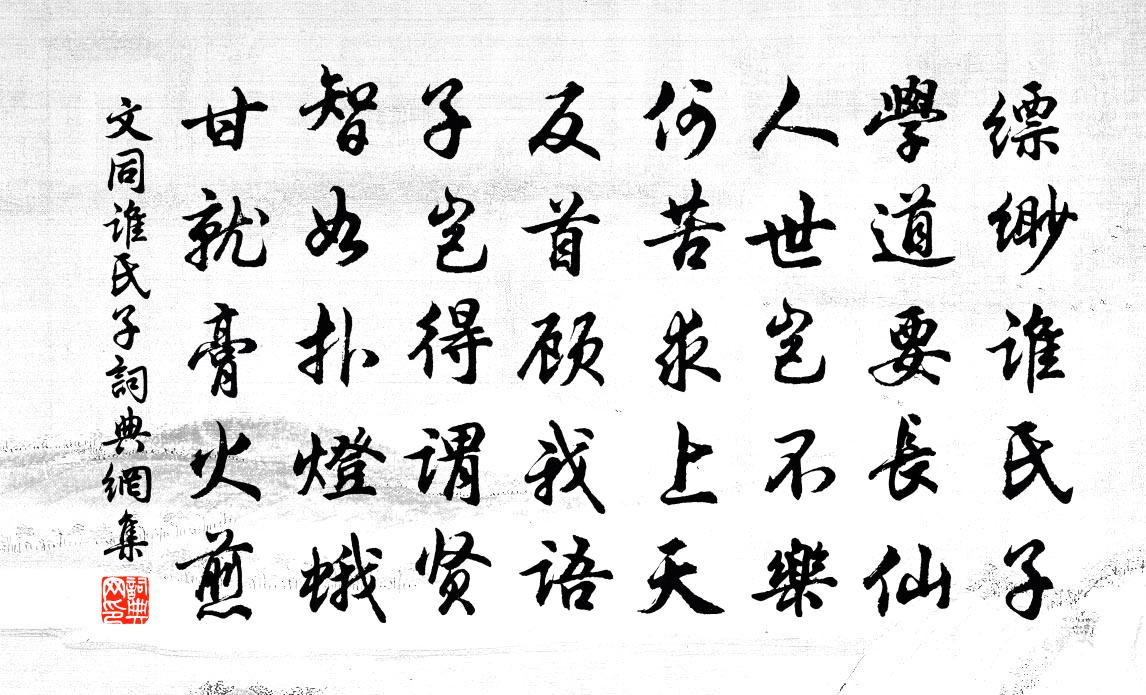 缥緲誰民子
學道要長仙
人世岂不樂
何苦求上天
反首顾我語
子岂得謂贤
智如扑燈蛾
甘就膏火煎
文同誰民子詞典網集
詞典网印